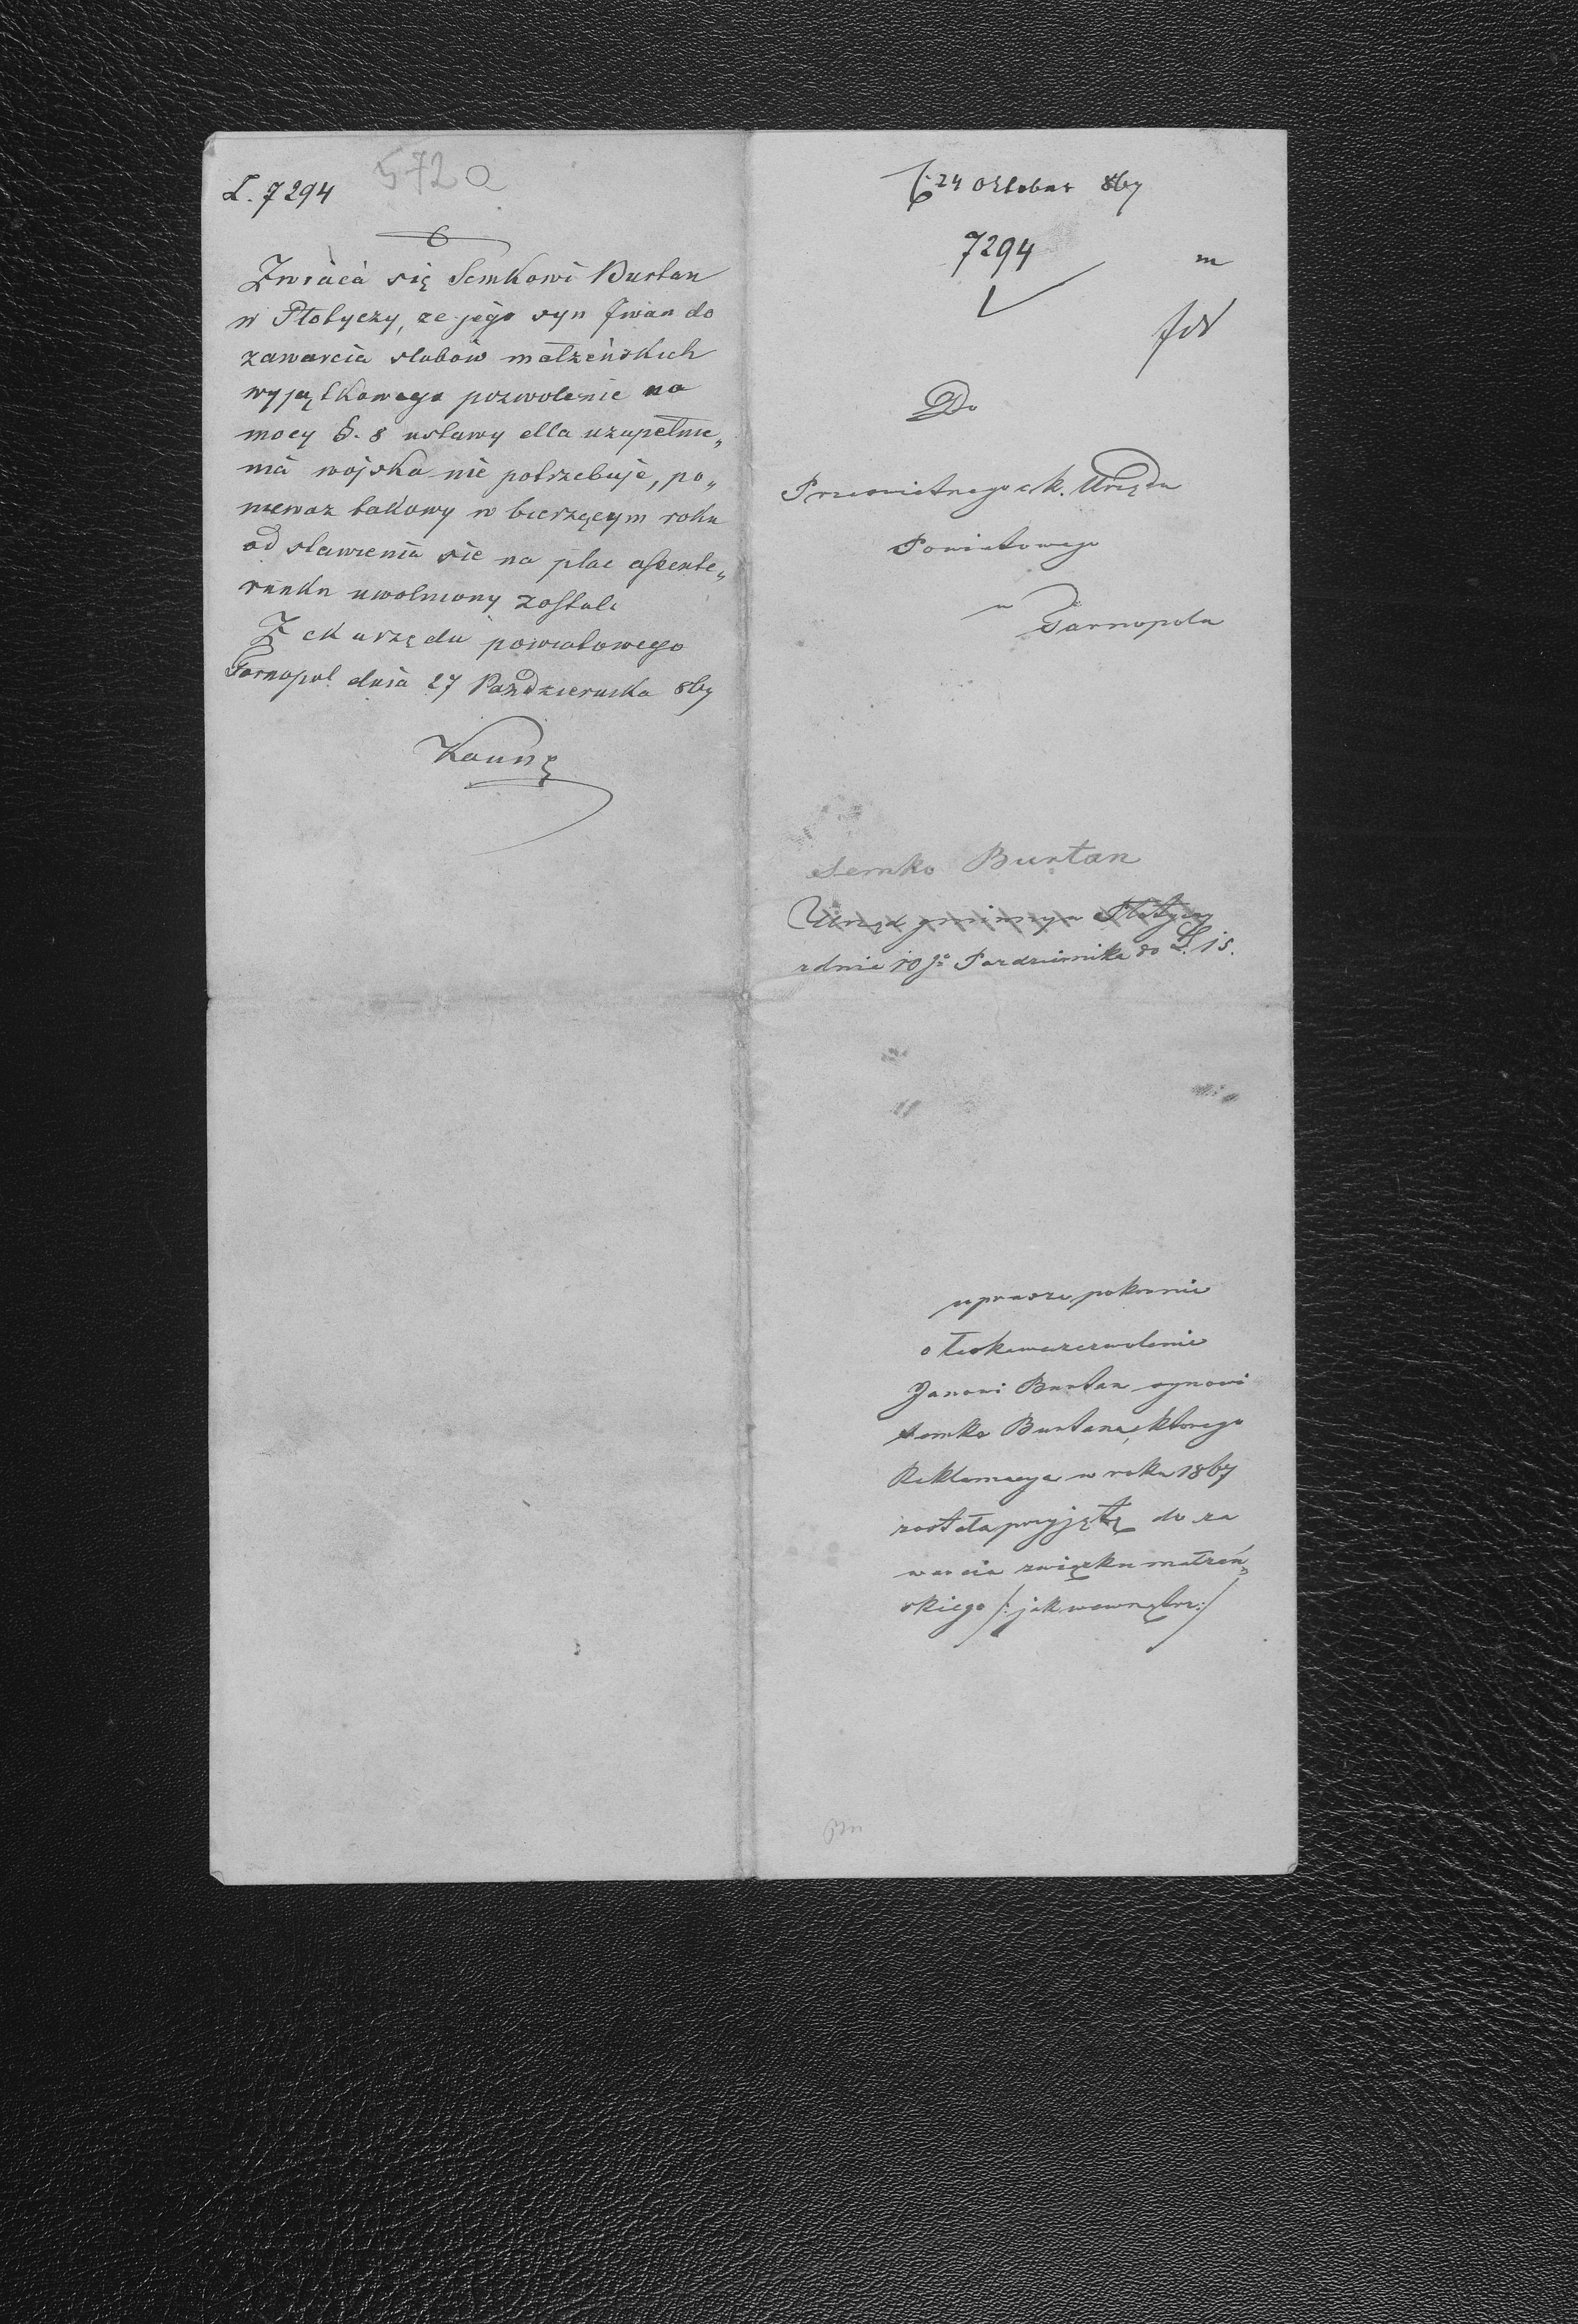 L. 7294
572a
Zwraca się Semkowi Burtan
w Płotyczy, ze jego syn Iwan do
zawarcia slubów małżeńskich
wyjątkowego pozwolenie na
mocy §. 8 ustawy dla uzupełnie„
nia wojska nie potrzebuje, po„
niewaz takowy w bierzącym roku
od stawienia sie na plac assente„
runku uwolniony został.
Z ck urzędu powiatowego
Tarnopol dnia 27 Pazdziernika 867
24 October 867
7294
m
Do
Prześwietnego c k. Urzędu
Powiatowego
w
Tarnopolu
Semko Burtan
Urząd gminny w Płotyczy
z dnia 10go Pazdziernika do L. 15.
uprasza pokornie
o łaskawe zezwolenie
Janowi Burtan synowi
Semka Burtana, którego
Reklamacya w roku 1867
została przyjętą do za
warcia związku małżeń„
skiego /: jak wewnątrz :/